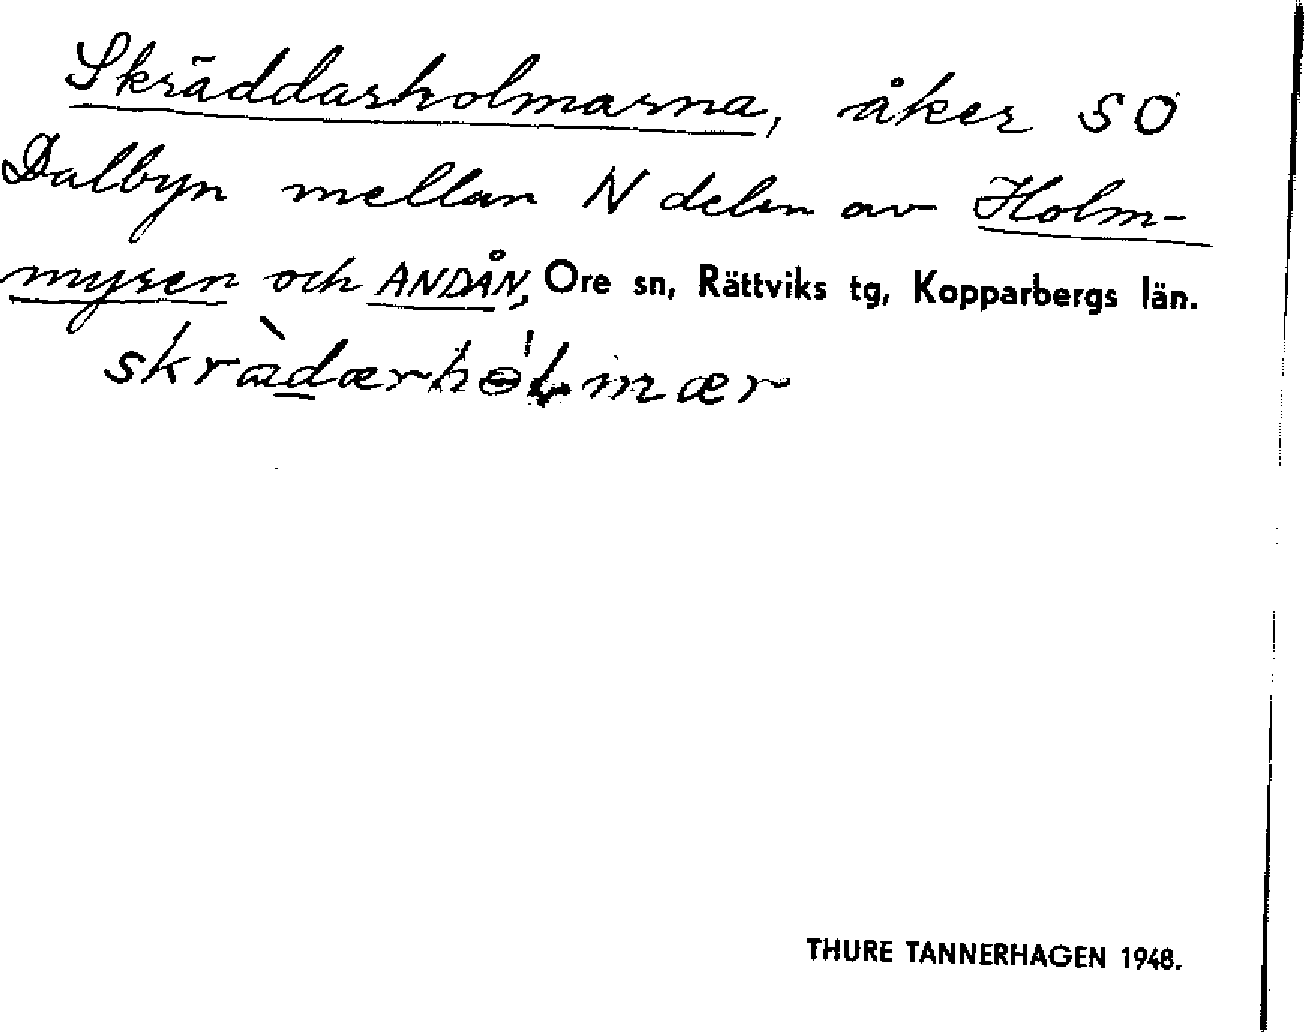 Skräddarholmarna, åker SÖ
Dalbyn mellan N delen av Holm-
myren och ANDÅN, Ore sn, Rättviks tg, Kopparbergs län.
THURE TANNERHAGEN 1948.